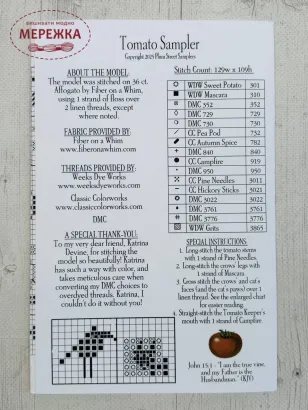 вишивати модно
МЕРЕЖКА
Tomato Sampler
Copyright 2025 Plum Street Samplers
ABOUT THE MODEL
The model was stitched on 36 ct.
Affogato by Fiber on a Whim,
using 1 strand of floss over
2 linen threads, except
where noted.
FABRIC PROVIDED BY:
Fiber on a Whim
www.fiberonawhim.com
THREADS PROVIDED BY:
Weeks Dye Works
www.weeksdyeworks.com
Classic Colorworks
www.classiccolorworks.com
DMC
A SPECIAL THANK-YOU:
To my very dear friend, Katrina
Devine, for stitching the
model so beautifully! Katrina
has such a way with color, and
takes meticulous care when
converting my DMC choices to
overdyed threads. Katrina, I
couldn't do it without you!
Stitch Count: 129w x 109h
WDW Sweet Potato 301
WDW Mascara 310
DMC 352 352
DMC 729 729
DMC 730 730
CC Pea Pod 732
CC Autumn Spice 782
DMC 840 840
CC Campfire 919
DMC 950 950
CC Pine Needles 3011
CC Hickory Sticks 3021
DMC 3022 3022
DMC 3761 3761
DMC 3776 3776
WDW Grits 3865
SPECIAL INSTRUCTIONS:
1. Long-stitch the tomato stems
with 1 strand of Pine Needles.
2. Long-stitch the crow's legs with
1 strand of Mascara.
3. Cross stitch the crow's and cat's
faces (and the cat's paws) over 1
linen thread. See the enlarged chart
for easier reading.
4. Straight-stitch the Tomato Keeper's
mouth with 1 strand of Campfire.
John 15:1 - "I am the true vine,
and my Father is the
Husbandman." (KJV)